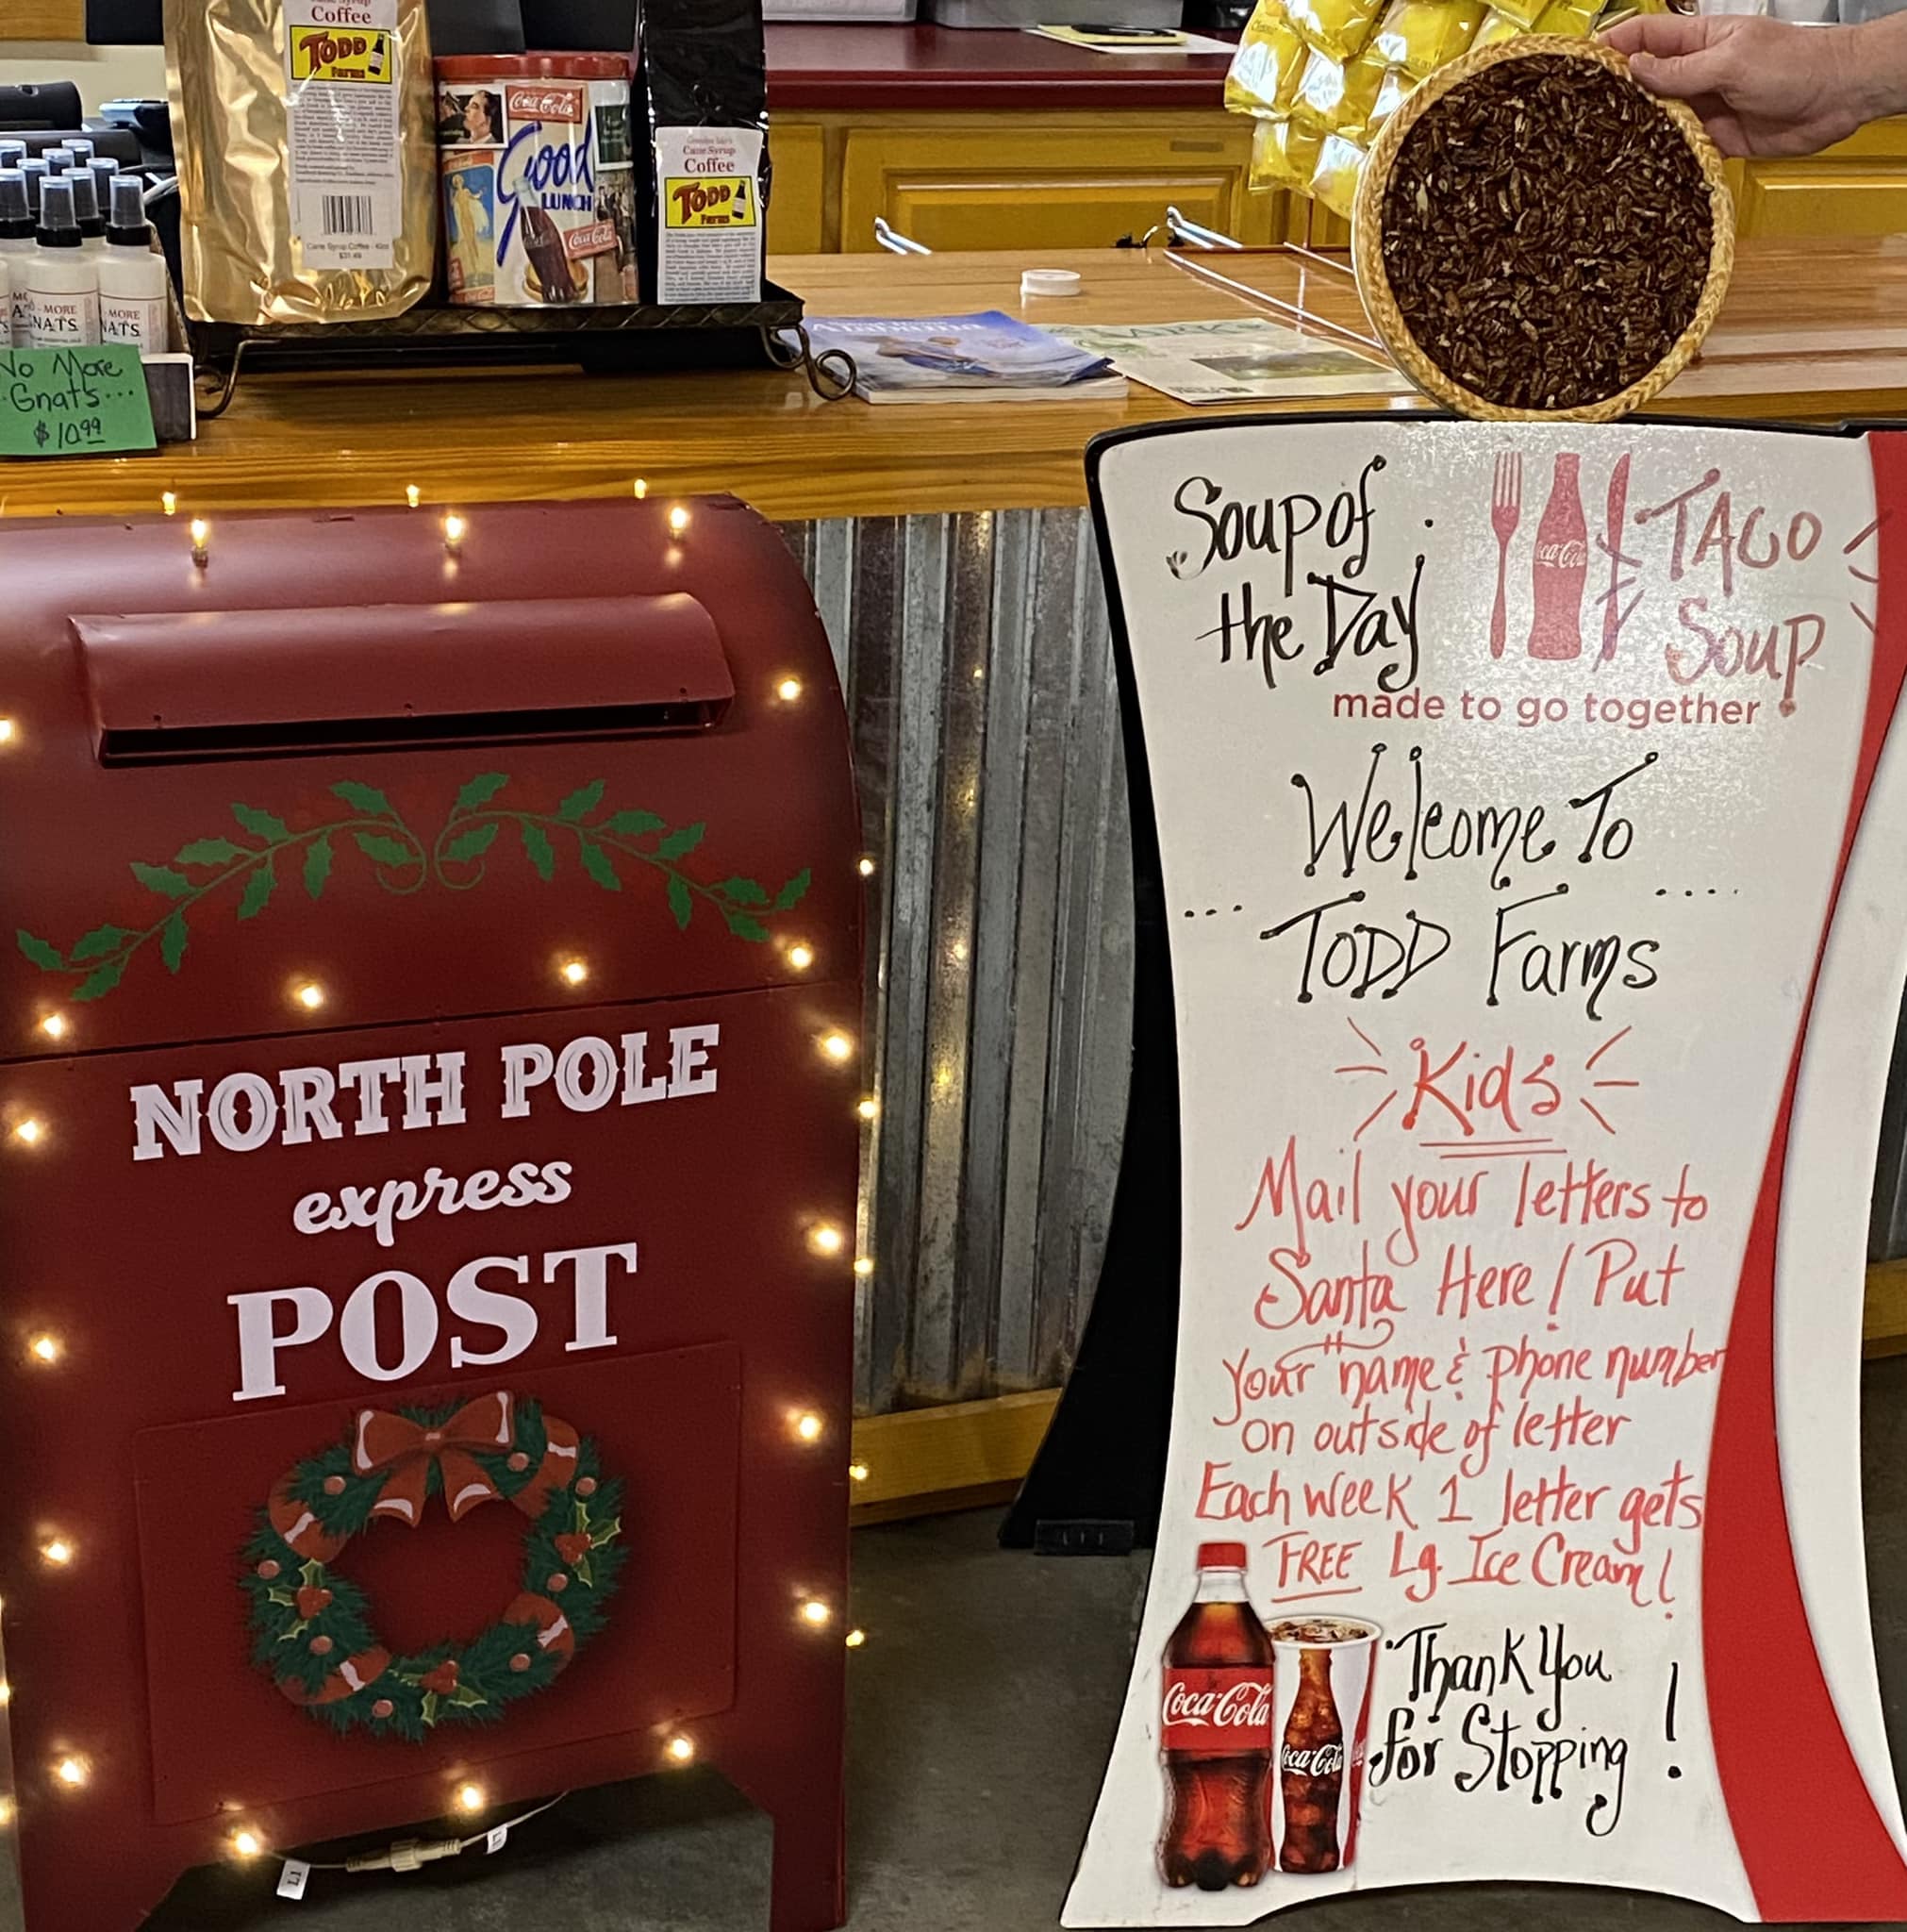 Coffee
TODD
Farms
Cane Syrup Coffee - 40ct
$31.49
Coca-Cola
Good
LUNCH
Coca-Cola
Cane Syrup
Coffee
TODD
Farms
MORE
NATS
MORE
NATS
No More
Gnats...
$10.99
NORTH POLE
express
POST
Soup of
the Day
Coca-Cola
TACO
SOUP
made to go together
Welcome To
... TODD Farms ....
Kids
Mail your letters to
Santa Here! Put
Your name & phone number
on outside of letter
Each week 1 letter gets
FREE Lg. Ice Cream!
Coca-Cola
Coca-Cola
Thank You
for Stopping !
L1